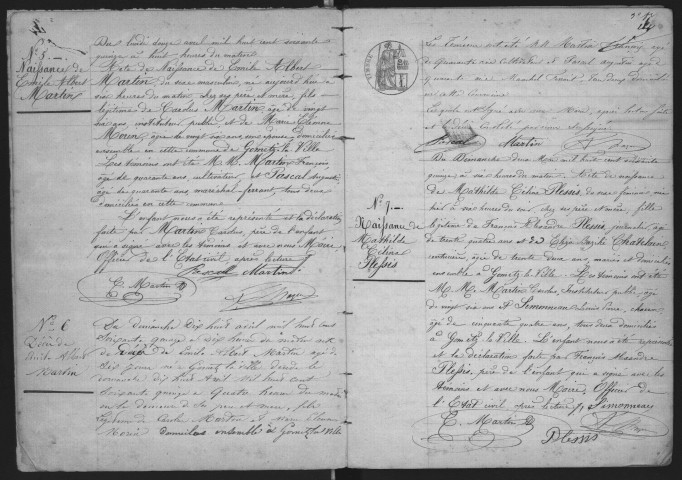 N° 5
Naissance de
Emile Albert
Martin
Du lundi douze avril mil huit cent soixante
quinze à huit heures du matin
Acte de Naissance de Emile Albert
Martin du sexe masculin, né aujourd'hui à
six heures du matin, chez ses père et mère, fils
légitime de Carolus Martin âgé de vingt
six ans, instituteur public et de Marie Etienne
Morin, âgée de vingt six ans, son épouse, domiciliés
ensemble en cette commune de Gometz la Ville
Les témoins ont été M. M. Martin François
âgé de quarante ans, cultivateur, et Pascal
âgé de quarante ans, maréchal-ferrant, tous deux
domiciliés en cette commune
L'enfant nous a été représenté et la déclaration
faite par Martin Carolus, père de l'enfant
qui a signé avec les témoins et avec nous Maire
Officier de l'Etat civil, après lecture
Pascal Martin
C. Martin
N° 6
Décès de
Emile Albert
Martin
Du dimanche dix huit avril mil huit cent
soixante quinze à dix heures du matin acte
de décès de Emile Albert Martin âgé de
six jours né à Gometz la ville décédé le
dimanche dix huit avril mil huit cent
soixante quinze à quatre heures du matin
en la demeure de ses père et mère, fils
légitime de Carolus Martin et de Marie Etienne
Morin domiciliés ensemble à Gometz la Ville
Les témoins ont été M. M. Martin François, âgé
de quarante ans cultivateur et Pascal
quarante ans Maréchal ferrant, tous deux domiciliés
en cette Commune
et ont signé avec nous Maire, après lecture faite
et le décès constaté par nous soussigné
Pascal Martin
N° 7
Naissance de
Mathilde
Céline
Plessis
Du Dimanche deux Mai mil huit cent soixante
quinze à dix heures du matin. Acte de naissance
de Mathilde Céline Plessis du sexe féminin née
hier à six heures du soir, chez ses père et mère, fille
légitime de François Alexandre Plessis, journalier, âgé
de trente quatre ans et de
couturière, âgée de trente deux ans, mariés et domiciliés
ensemble à Gometz la Ville. Les témoins ont été
M. M. Martin Carolus, Instituteur public, âgé
de vingt six ans et Simonneau Louis
âgé de cinquante quatre ans, tous deux domiciliés
à Gometz la Ville. L'enfant nous a été représenté
et la déclaration faite par François Alexandre
Plessis, père de l'enfant qui a signé avec les
témoins et avec nous Maire, Officier de
l'Etat civil après lecture. Simonneau
C. Martin
Plessis